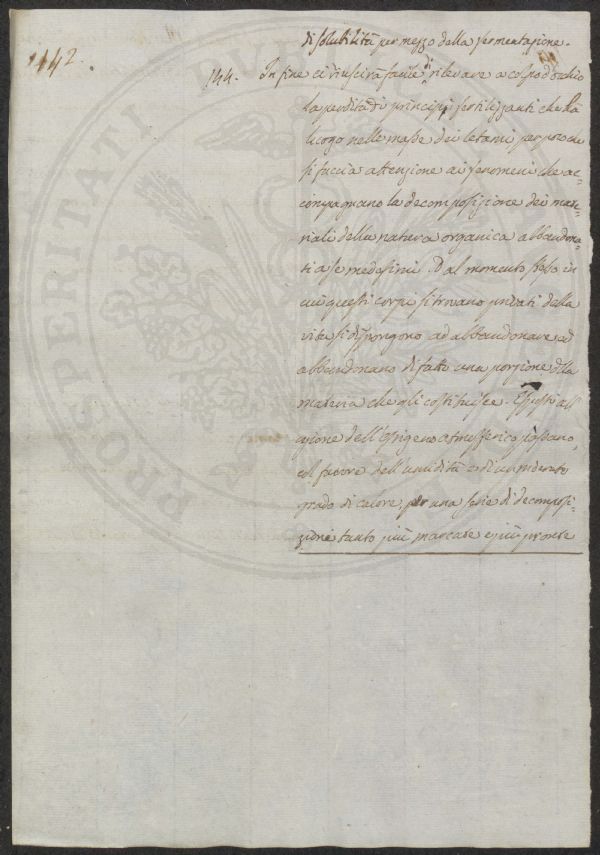 di solubilità per mezzo della fermentazione.
1442.
144. In fine ci riuscirà facile di rilevare a colpo d'occhio
la perdita di principj fertilizzanti che ha
luogo nelle masse dei letami per poco che
si faccia attenzione ai fenomeni che ac=
compagnano la decomposizione dei mate=
riali della natura organica abbandona=
ti a se medesimi. Dal momento stesso in
cui questi corpi si trovano privati della
vita si dispongono ad abbandonare ed
abbandonano di fatto una porzione della
materia che gli costituisce. Esposti all'
azione dell'ossigeno atmosferico passano,
col favore dell'umidità e di un moderato
grado di calore, per una serie di decomposi=
zioni tanto più marcate e più pronte
PROSPERITATI PUBLICAE